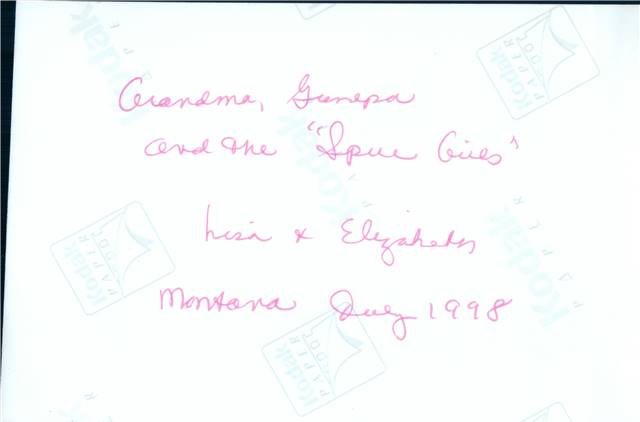 Grandma, Grampa
and the "Spice Girls"
Lisa & Elizabeth
Montana July 1998
Kodak
PAPER
Kodak
PAPER
Kodak
PAPER
Kodak
PAPER
Kodak
PAPER